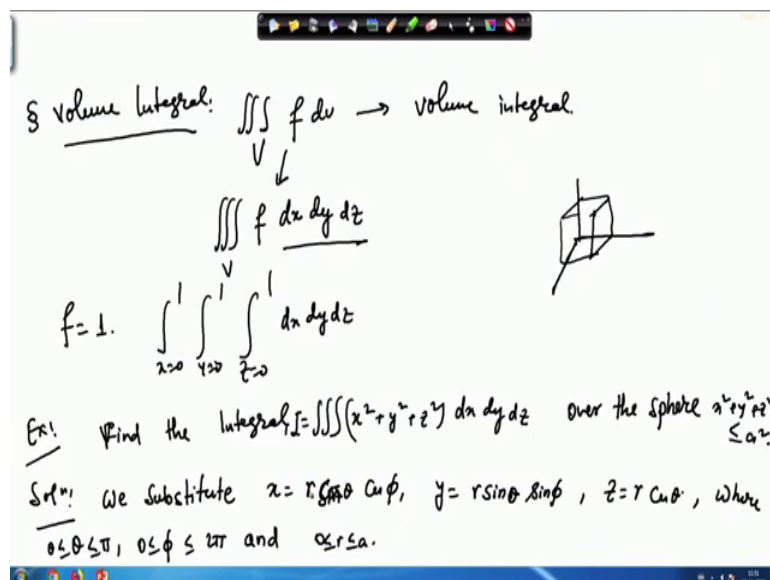 § Volume Integral: ∭_V f dv → volume integral.
∭_V f dx dy dz
f = 1. ∫_{x=0}^{1} ∫_{y=0}^{1} ∫_{z=0}^{1} dx dy dz
Ex! Find the Integral, I = ∭(x²+y²+z²) dx dy dz over the sphere x²+y²+z²
≤ a².
Solⁿ! We substitute x = r sinθ cosϕ, y = r sinθ sinϕ, z = r cosθ, where
0≤θ≤π, 0≤ϕ≤2π and 0≤r≤a.